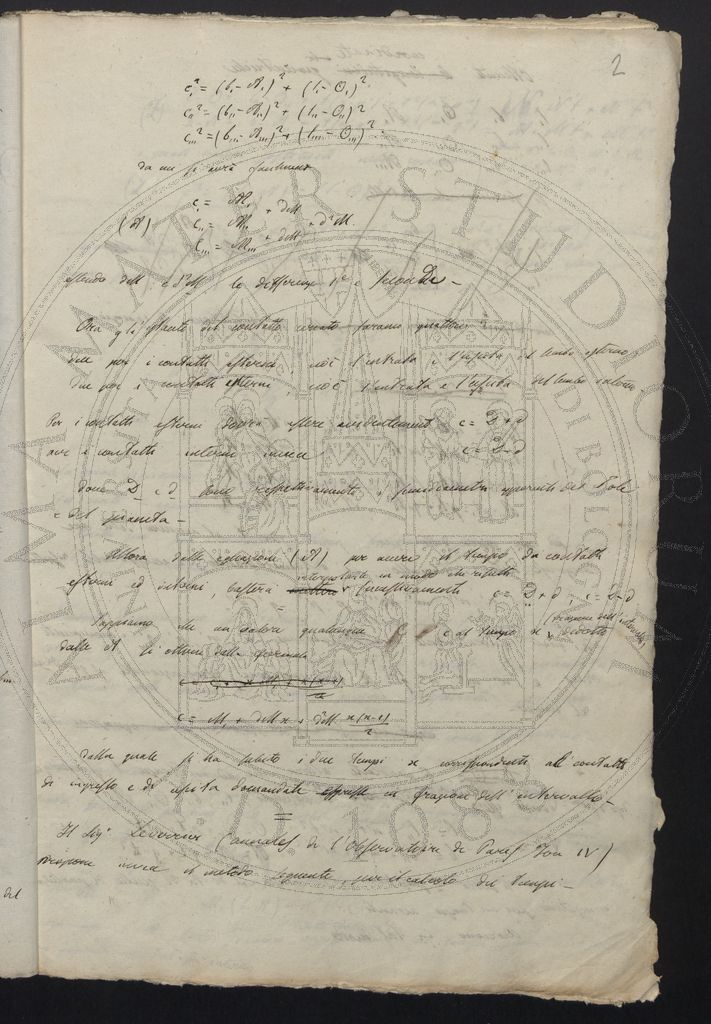 2
c,² = (b, - A,)² + (l, - O,)²
c,,² = (b,, - A,,)² + (l,, - O,,)²
c,,,² = (b,,, - A,,,)² + (l,,, - O,,,)²
da cui si avrà
c, = M,
(A) c,, = M,, + dM
c,,, = M,,, + dM + d²M
essendo dM e d²M le differenze 1e e seconde –
Ora gli istanti del contatto saranno quattro
due per i contatti esterni cioè l'entrata e l'uscita del lembo esterno
due per i contatti interni, cioè l'entrata e l'uscita del lembo
Per i contatti esterni dovrà essere evidentemente c = D + d
per i contatti interni invece c = D - d
dove D e d sono rispettivamente i semidiametri apparenti del Sole
e del pianeta –
Allora dalle equazioni (A) per avere il tempo da contatti
interpolarle in modo che risulti
esterni ed interni, basterà successivamente c = D + d c = D - d
Sappiamo che un valore qualunque c al tempo x (frazione dell'intervallo) dedotto
dalle A si ottiene dalla formula
c = M + dM x + d²M x(x-1)/2
dalla quale si ha subito i due tempi x corrispondenti ai contatti
di ingresso e di uscita domandati in frazione dell'intervallo –
Il Sigr Leverrier (Annales de l'Observatoire de Paris Tom IV)
propone invece il metodo seguente, per il calcolo dei tempi –
del
ALMA MATER STUDIORUM
A.D. 1088